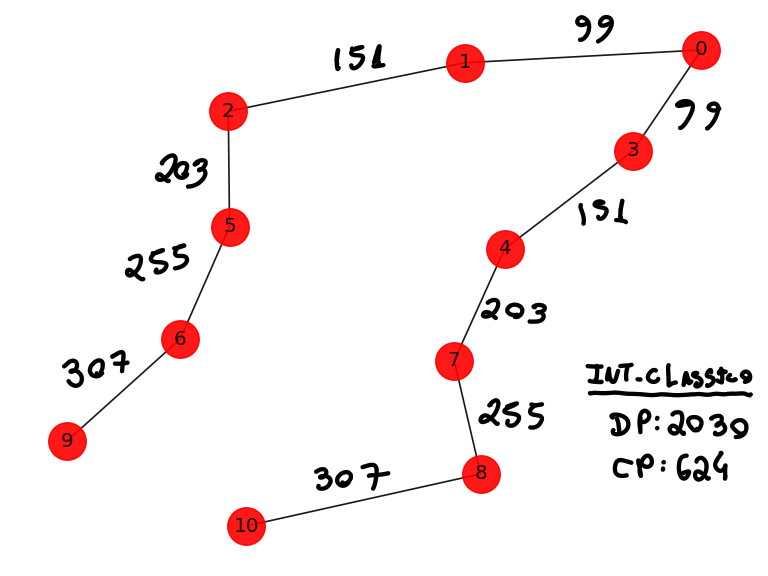 99
0
151
1
2
99
3
203
151
5
4
255
203
6
307
7
INT-CLASSICO
255
DP:2030
9
CP:624
307
8
10